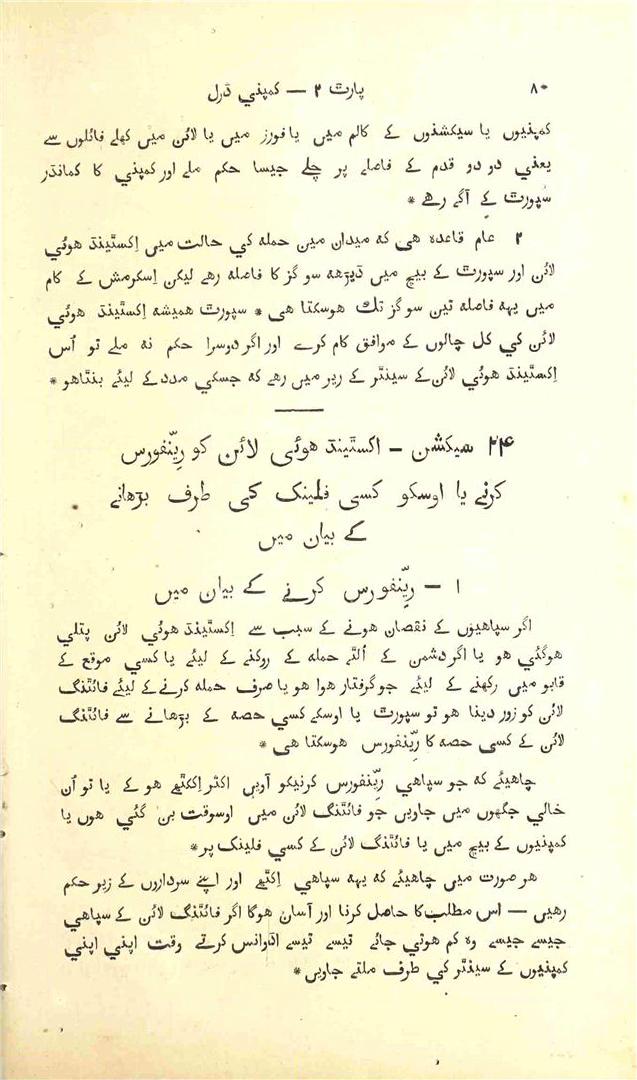 پارٹ ۲ — کمپني ڈرل ۸۰
کمپنیوں یا سیکشنوں کے کالم میں یا فورز میں یا لائن میں کھلے فائلوں سے
یعني دو دو قدم کے فاصلے پر چلے جیسا حکم ملے اور کمپني کا کمانڈر
سپورٹ کے آگے رهے *
۲ عام قاعدہ هی کہ میدان مین حملہ کي حالت میں اِکسٹینڈ هوئي
لائن اور سپورٹ کے بیچ میں ڈیڑهہ سو گز کا فاصلہ رهے لیکن اِسکرمش کے کام
میں یہہ فاصلہ تین سو گز تک هوسکتا هی * سپورٹ همیشہ اِکسٹینڈ هوئي
لائن کي کل چالوں کے موافق کام کرے اور اگر دوسرا حکم نہ ملے تو اُس
اِکسٹینڈ هوئي لائن کے سینٹر کے ریر میں رهے کہ جسکي مدد کے لیئے بنتاهو *
۲۴ سیکشن – اکسٹینڈ هوئی لائن کو رِینّفورس
کرنے یا اوسکو کسی فلینک کی طرف بڑهانے
کے بیان میں
۱ – رِینّفورس کرنے کے بیان میں
اگر سپاهیوں کے نقصان هونے کے سبب سے اِکسٹینڈ هوئي لائن پتلي
هوگئي هو یا اگر دشمن کے اُلٹے حملہ کے روکنے کے لیئے یا کسي موقع کے
قابو میں رکهنے کے لیئے جو گرفتار هوا هو یا صرف حملہ کرنے کے لیئے فائٹنگ
لائن کو زور دینا هو تو سپورٹ یا اوسکے کسي حصہ کے بڑهانے سے فائٹنگ
لائن کے کسي حصہ کا رِینّفورس هوسکتا هی *
چاهیئے کہ جو سپاهي رِینّفورس کرنیکو آویں اکثر اِکٹهے هو کے یا تو اُن
خالي جگهوں میں جاویں جو فائٹنگ لائن میں اوسوقت بن گئي هوں یا
کمپنیوں کے بیچ میں یا فائٹنگ لائن کے کسي فلینک پر *
هر صورت میں چاهیئے کہ یہہ سپاهي اِکٹهے اور اپنے سرداروں کے زیر حکم
رهیں — اس مطلب کا حاصل کرنا اور آسان هوگا اگر فائٹنگ لائن کے سپاهي
جیسے جیسے وہ کم هوتي جائے تیسے تیسے اڈوانس کرتے وقت اپني اپني
کمپنیوں کے سینٹر کي طرف ملتے جاویں *